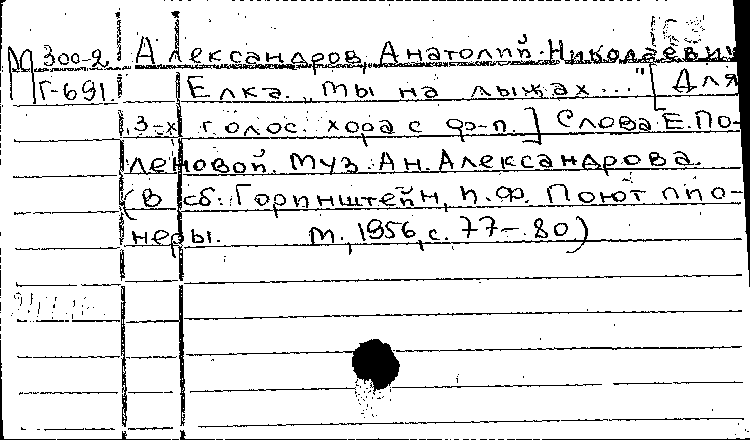 М 300-2 Александров, Анатолий Николаевич
Г-691 Елка. "Мы на лыжах..." [Для
3-х голос. хора с ф-п.] Слова Е. По-
леновой. Муз. Ан. Александрова.
(В сб.: Горинштейн, П.Ф. Поют пио-
неры. М., 1956, с. 77-80)